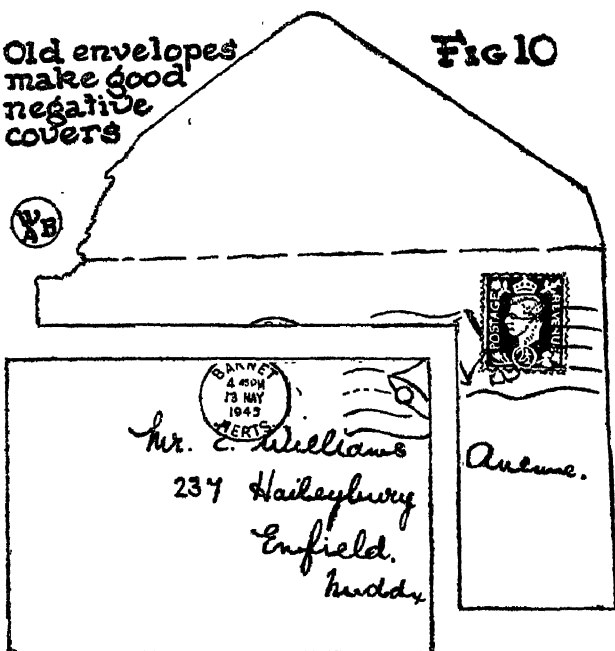 Old envelopes
make good
negative
covers
FIG 10
WAB
POSTAGE
REVENUE
2½
BARNET
4 45PM
13 MAY
1945
HERTS
Mr. C. Williams
237 Haileybury
Avenue.
Enfield.
Middx